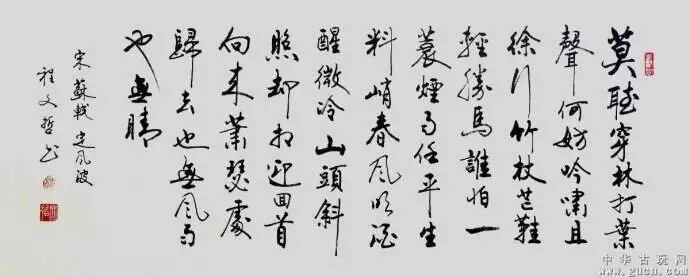 莫聽穿林打葉
聲何妨吟嘯且
徐行竹杖芒鞋
輕勝馬誰怕一
蓑煙雨任平生
料峭春風吹酒
醒微冷山頭斜
照却相迎回首
向来蕭瑟處
歸去也無風雨
也無晴
宋蘇軾定風波
程文哲书
中华古玩网
www.gucn.com